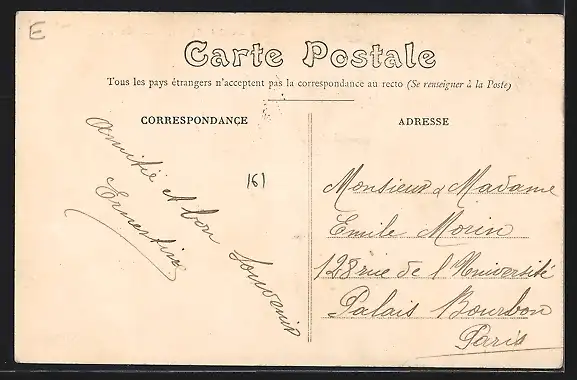 E
Carte Postale
Tous les pays étrangers n'acceptent pas la correspondance au recto (Se renseigner à la Poste)
CORRESPONDANCE
amitié et bon Souvenir
Ernestine
161
ADRESSE
Monsieur & Madame
Emile Morin
128 rue de l'Université
Palais Bourbon
Paris